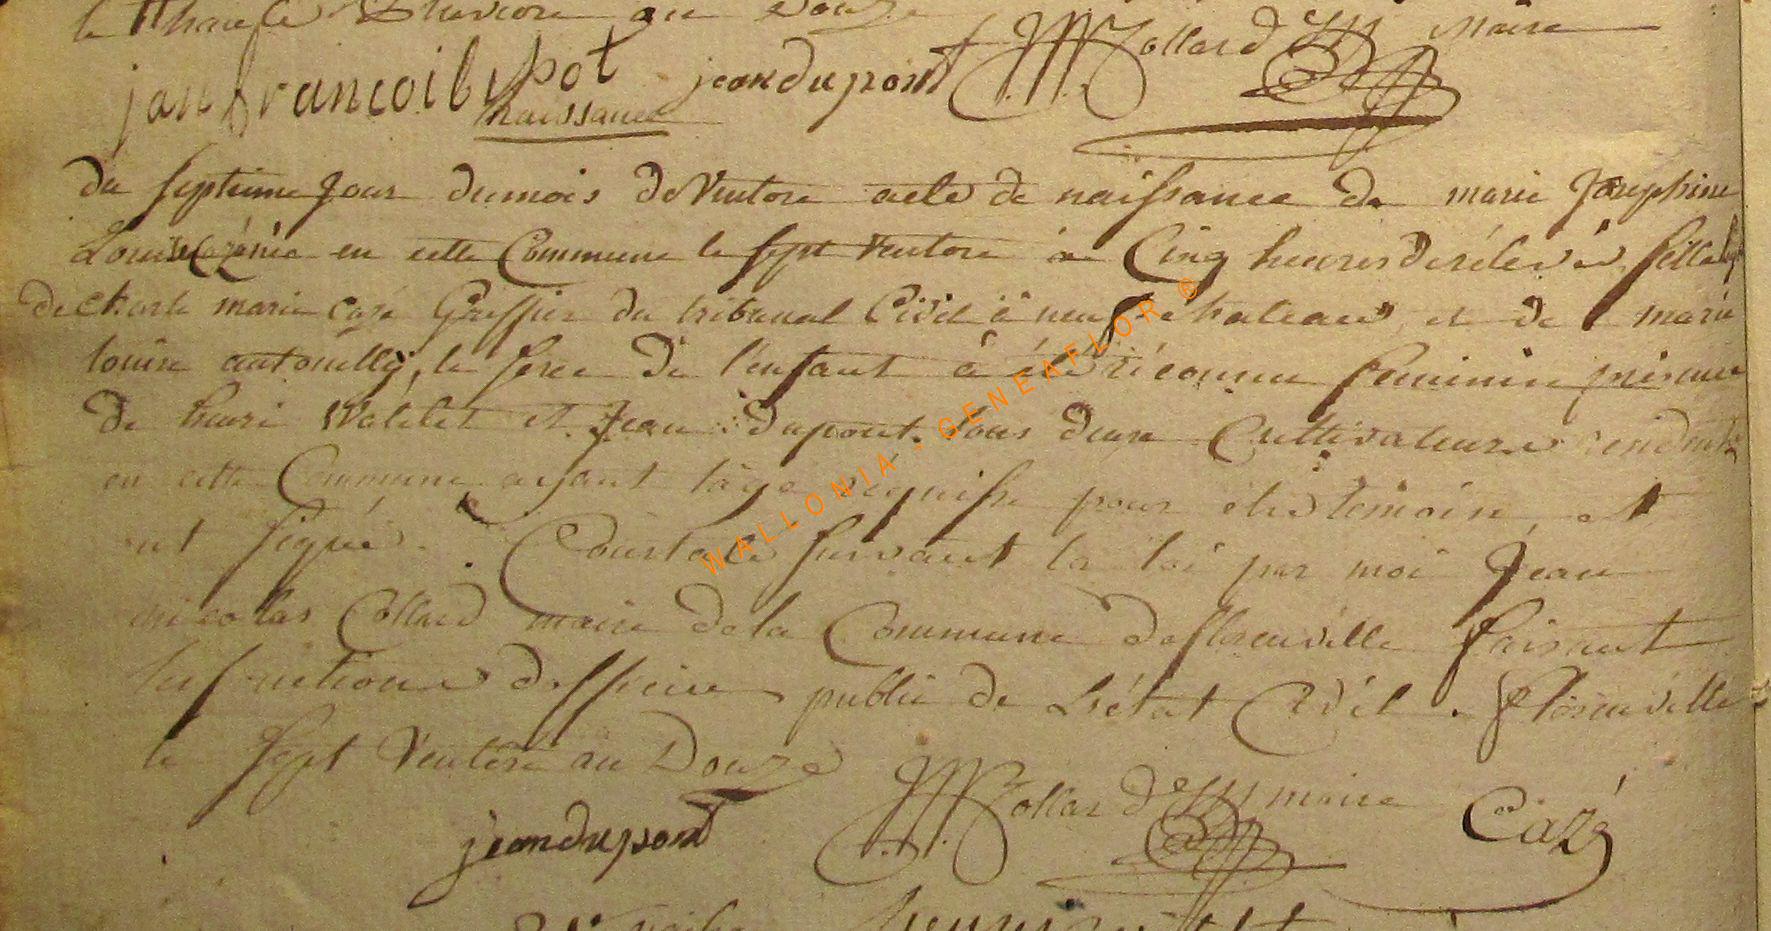 le trente Pluviose an Douze
JN Collard M Maire
jan francoi lepot jean dupont
naissance
du septieme Jour du mois de Ventose acte de naissance de marie Josephine
Louise Cazé née en cette Commune le sept Ventose à Cinq heures de rélevée fille
de charle marie cazé Greffier du tribunal Civil à neufchateau et de marie
louise antonilly, le sexe de l'enfant à été réconnu feminin présence
de henri Watelet et Jean dupont tous deux Cultivateurs residents
en cette Commune ayant l'age requisse pour être témoins, et
ont signé. Constaté suivant la loi par moi Jean
nicolas Collard maire de la Commune de florenville faisant
les fonctions d'officier public de L'état Civil. Florenville
le sept Ventose an Douze
JN Collard M maire
Cazé
jean dupont
henri
WALLONIA - GENEAFLOR ®